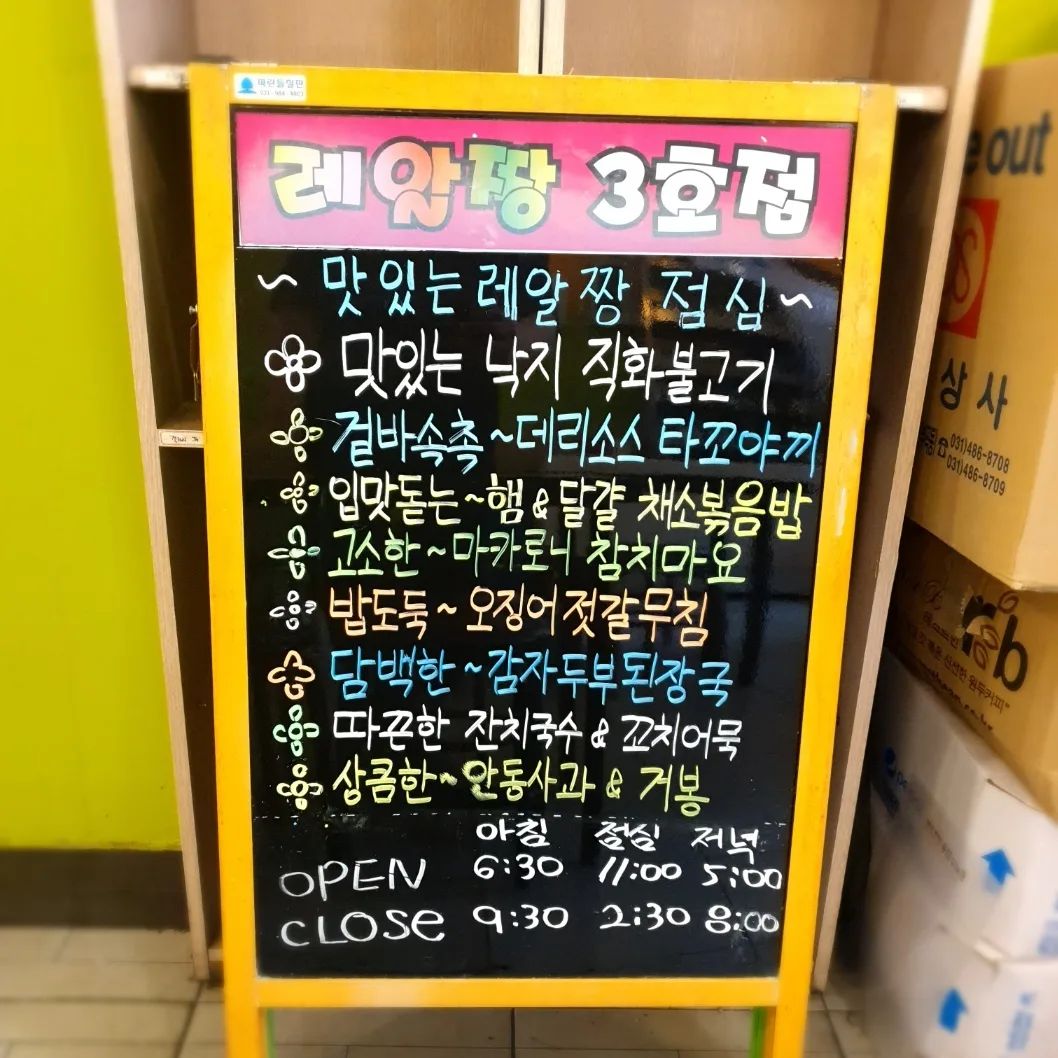 레알짱 3호점
~ 맛있는 레알짱 점심 ~
맛있는 낙지 직화불고기
겉바속촉 ~ 데리소스 타꼬야끼
입맛돋는 ~ 햄 & 달걀 채소볶음밥
고소한 ~ 마카로니 참치마요
밥도둑 ~ 오징어젓갈무침
담백한 ~ 감자두부된장국
따끈한 잔치국수 & 꼬치어묵
상콤한 ~ 안동사과 & 거봉
아침 점심 저녁
OPEN 6:30 11:00 5:00
CLOSE 9:30 2:30 8:00
e out
상사
031)486-8708
031)486-8709